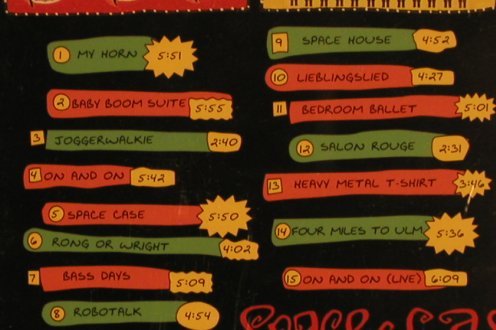 1 MY HORN 5:51
2 BABY BOOM SUITE 5:55
3 JOGGERWALKIE 2:40
4 ON AND ON 5:42
5 SPACE CASE 5:50
6 RONG OR WRIGHT 4:02
7 BASS DAYS 5:09
8 ROBOTALK 4:54
9 SPACE HOUSE 4:52
10 LIEBLINGSLIED 4:27
11 BEDROOM BALLET 5:01
12 SALON ROUGE 2:31
13 HEAVY METAL T-SHIRT 3:46
14 FOUR MILES TO ULM 5:36
15 ON AND ON (LIVE) 6:09